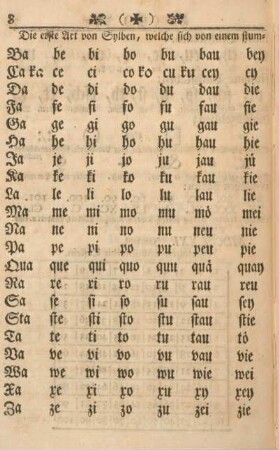 8 ( ✠ )
Die erste Art von Sylben, welche sich von einem stum⸗
Ba be bi bo bu bau bey
Ca ka ce ci co ko cu ku cey cy
Da de di do du dau die
Fa fe fi fo fu fau fie
Ga ge gi go gu gau gie
Ha he hi ho hu hau hie
Ja je ji jo ju jau jü
Ka ke ki ko ku kau kie
La le li lo lu lau lie
Ma me mi mo mu mö mei
Na ne ni no nu neu nie
Pa pe pi po pu peu pie
Qua que qui quo quu quä quay
Ra re ri ro ru rau reu
Sa se si so su sau sey
Sta ste sti sto stu stau stie
Ta te ti to tu tau tö
Va ve vi vo vu vau vie
Wa we wi wo wu wie wei
Xa xe xi xo xu xy xey
Za ze zi zo zu zei zie